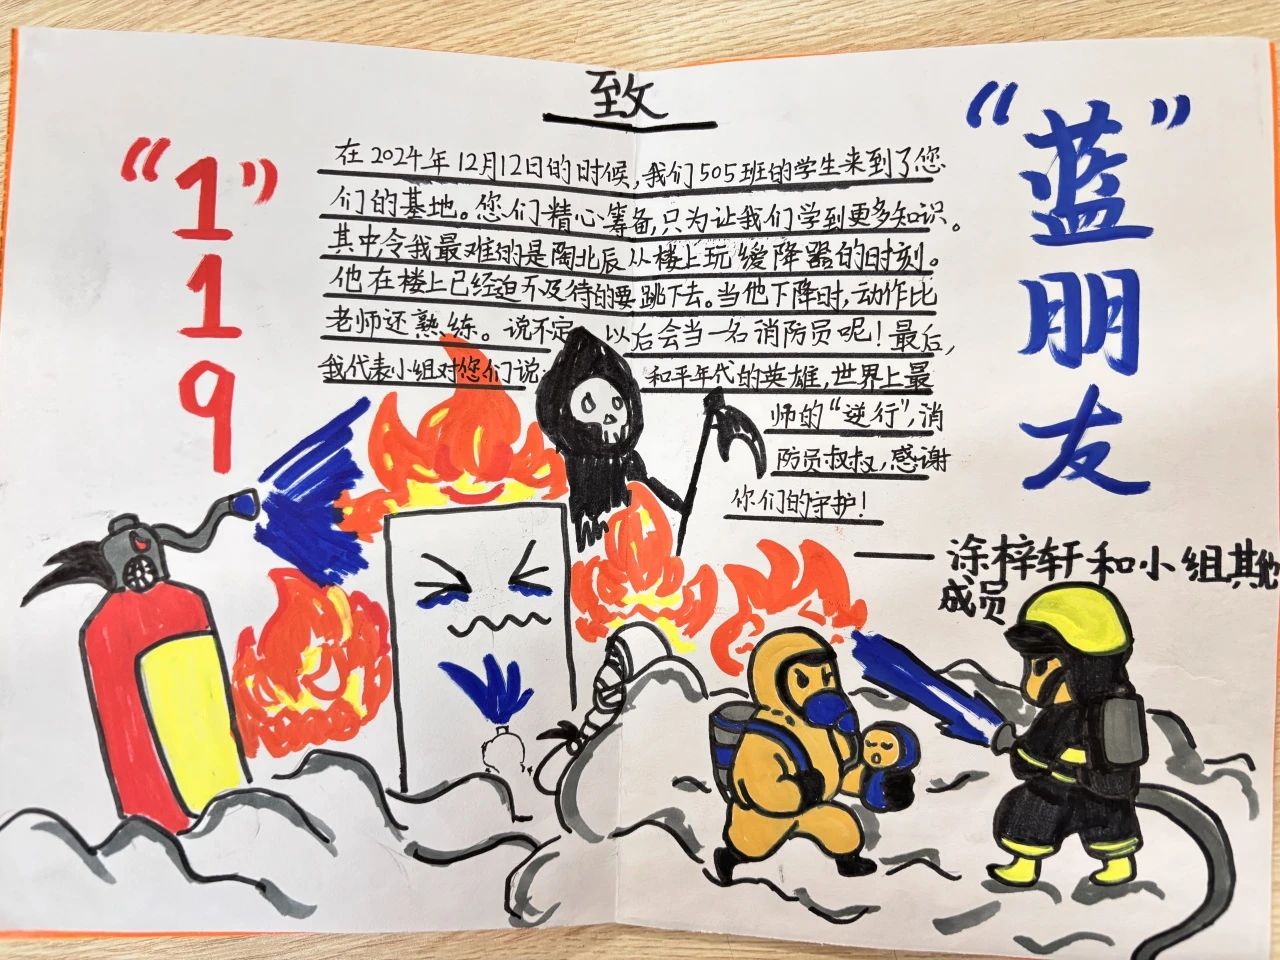 致
“1”
1
9
“蓝”
朋
友
在2024年12月12日的时候,我们505班的学生来到了您
们的基地。您们精心筹备,只为让我们学到更多知识。
其中令我最难的是陶北辰从楼上玩缓降器的时刻。
他在楼上已经迫不及待的要跳下去。当他下降时,动作比
老师还熟练。说不定 以后会当一名消防员呢!最后,
我代表小组对您们说: 和平年代的英雄,世界上最
师的“逆行”,消
防员叔叔,感谢
你们的守护!
——涂梓轩和小组其他
成员